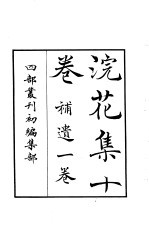 浣花集十
卷 補遺一卷
四部叢刊初編集部